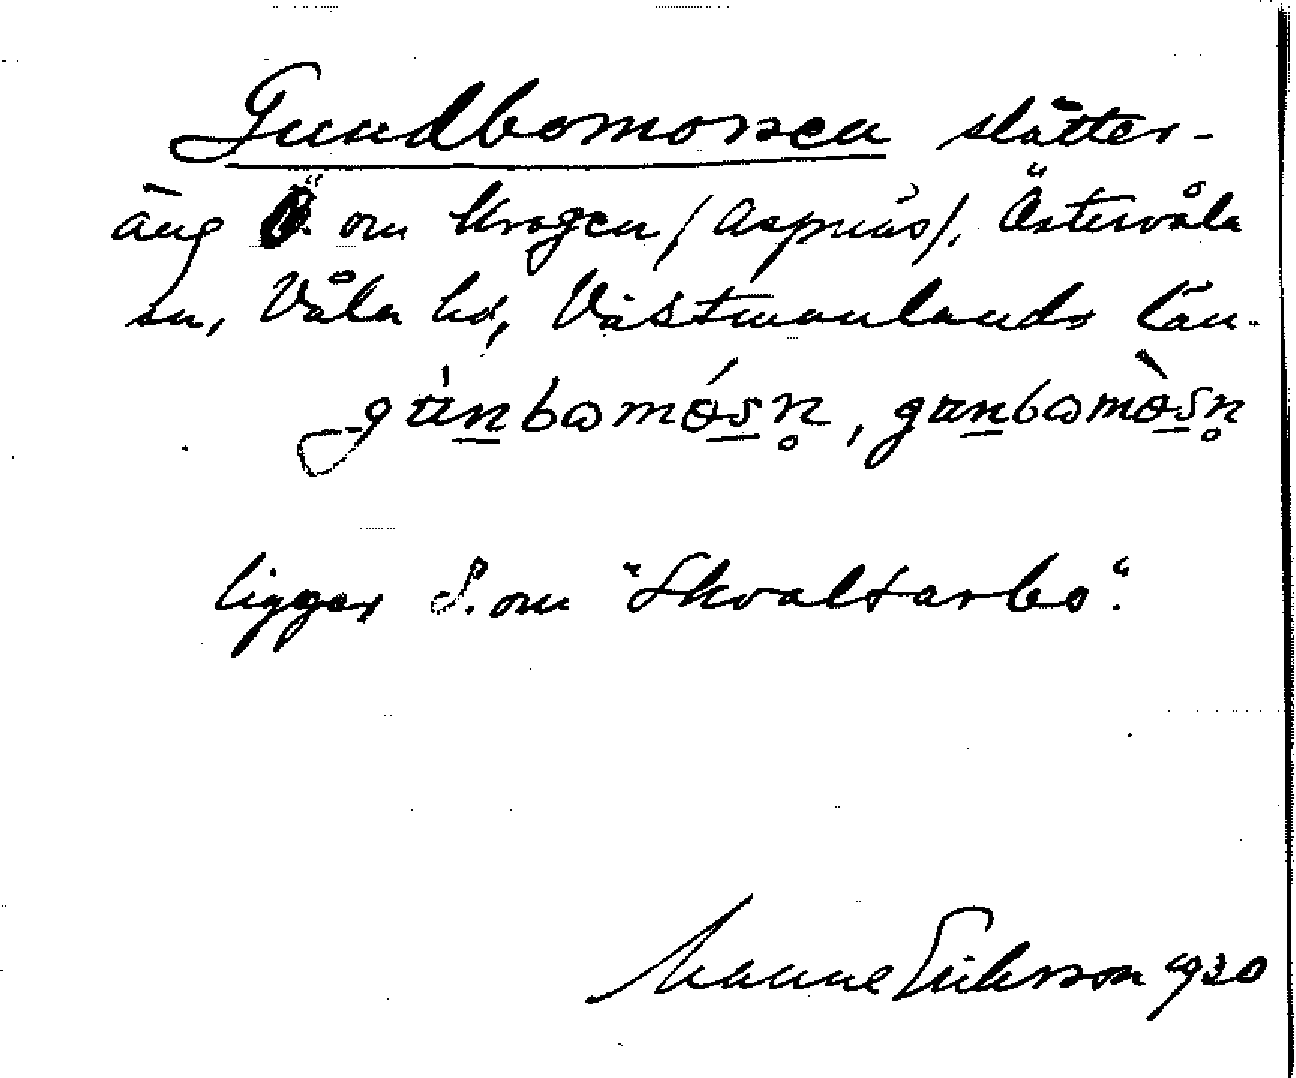 Gundbomossen slåtter-
äng Ö. om Kragen /Aspnäs/. Östervåla
sn, Våla hd, Västmanlands län.
ligger S. om "Skvaltarbo".
Manne Eriksson 1930